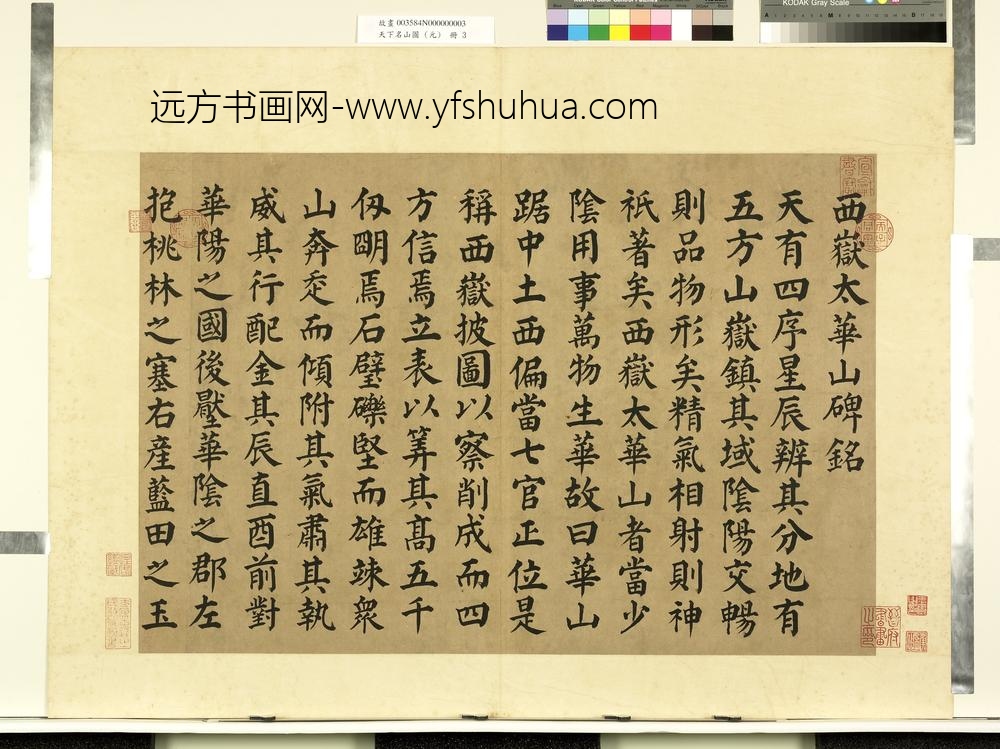 故畫 003584N000000003
天下名山圖（元） 冊 3
KODAK Gray Scale
远方书画网-www.yfshuhua.com
西嶽太華山碑銘
天有四序星辰辨其分地有
五方山嶽鎮其域陰陽交暢
則品物形矣精氣相射則神
祇著矣西嶽太華山者當少
陰用事萬物生華故曰華山
踞中土西偏當七官正位是
稱西嶽披圖以察削成而四
方信焉立表以筭其高五千
仭明焉石壁礫堅而雄竦衆
山奔走而傾附其氣肅其執
威其行配金其辰直酉前對
華陽之國後壓華陰之郡左
抱桃林之塞右產藍田之玉